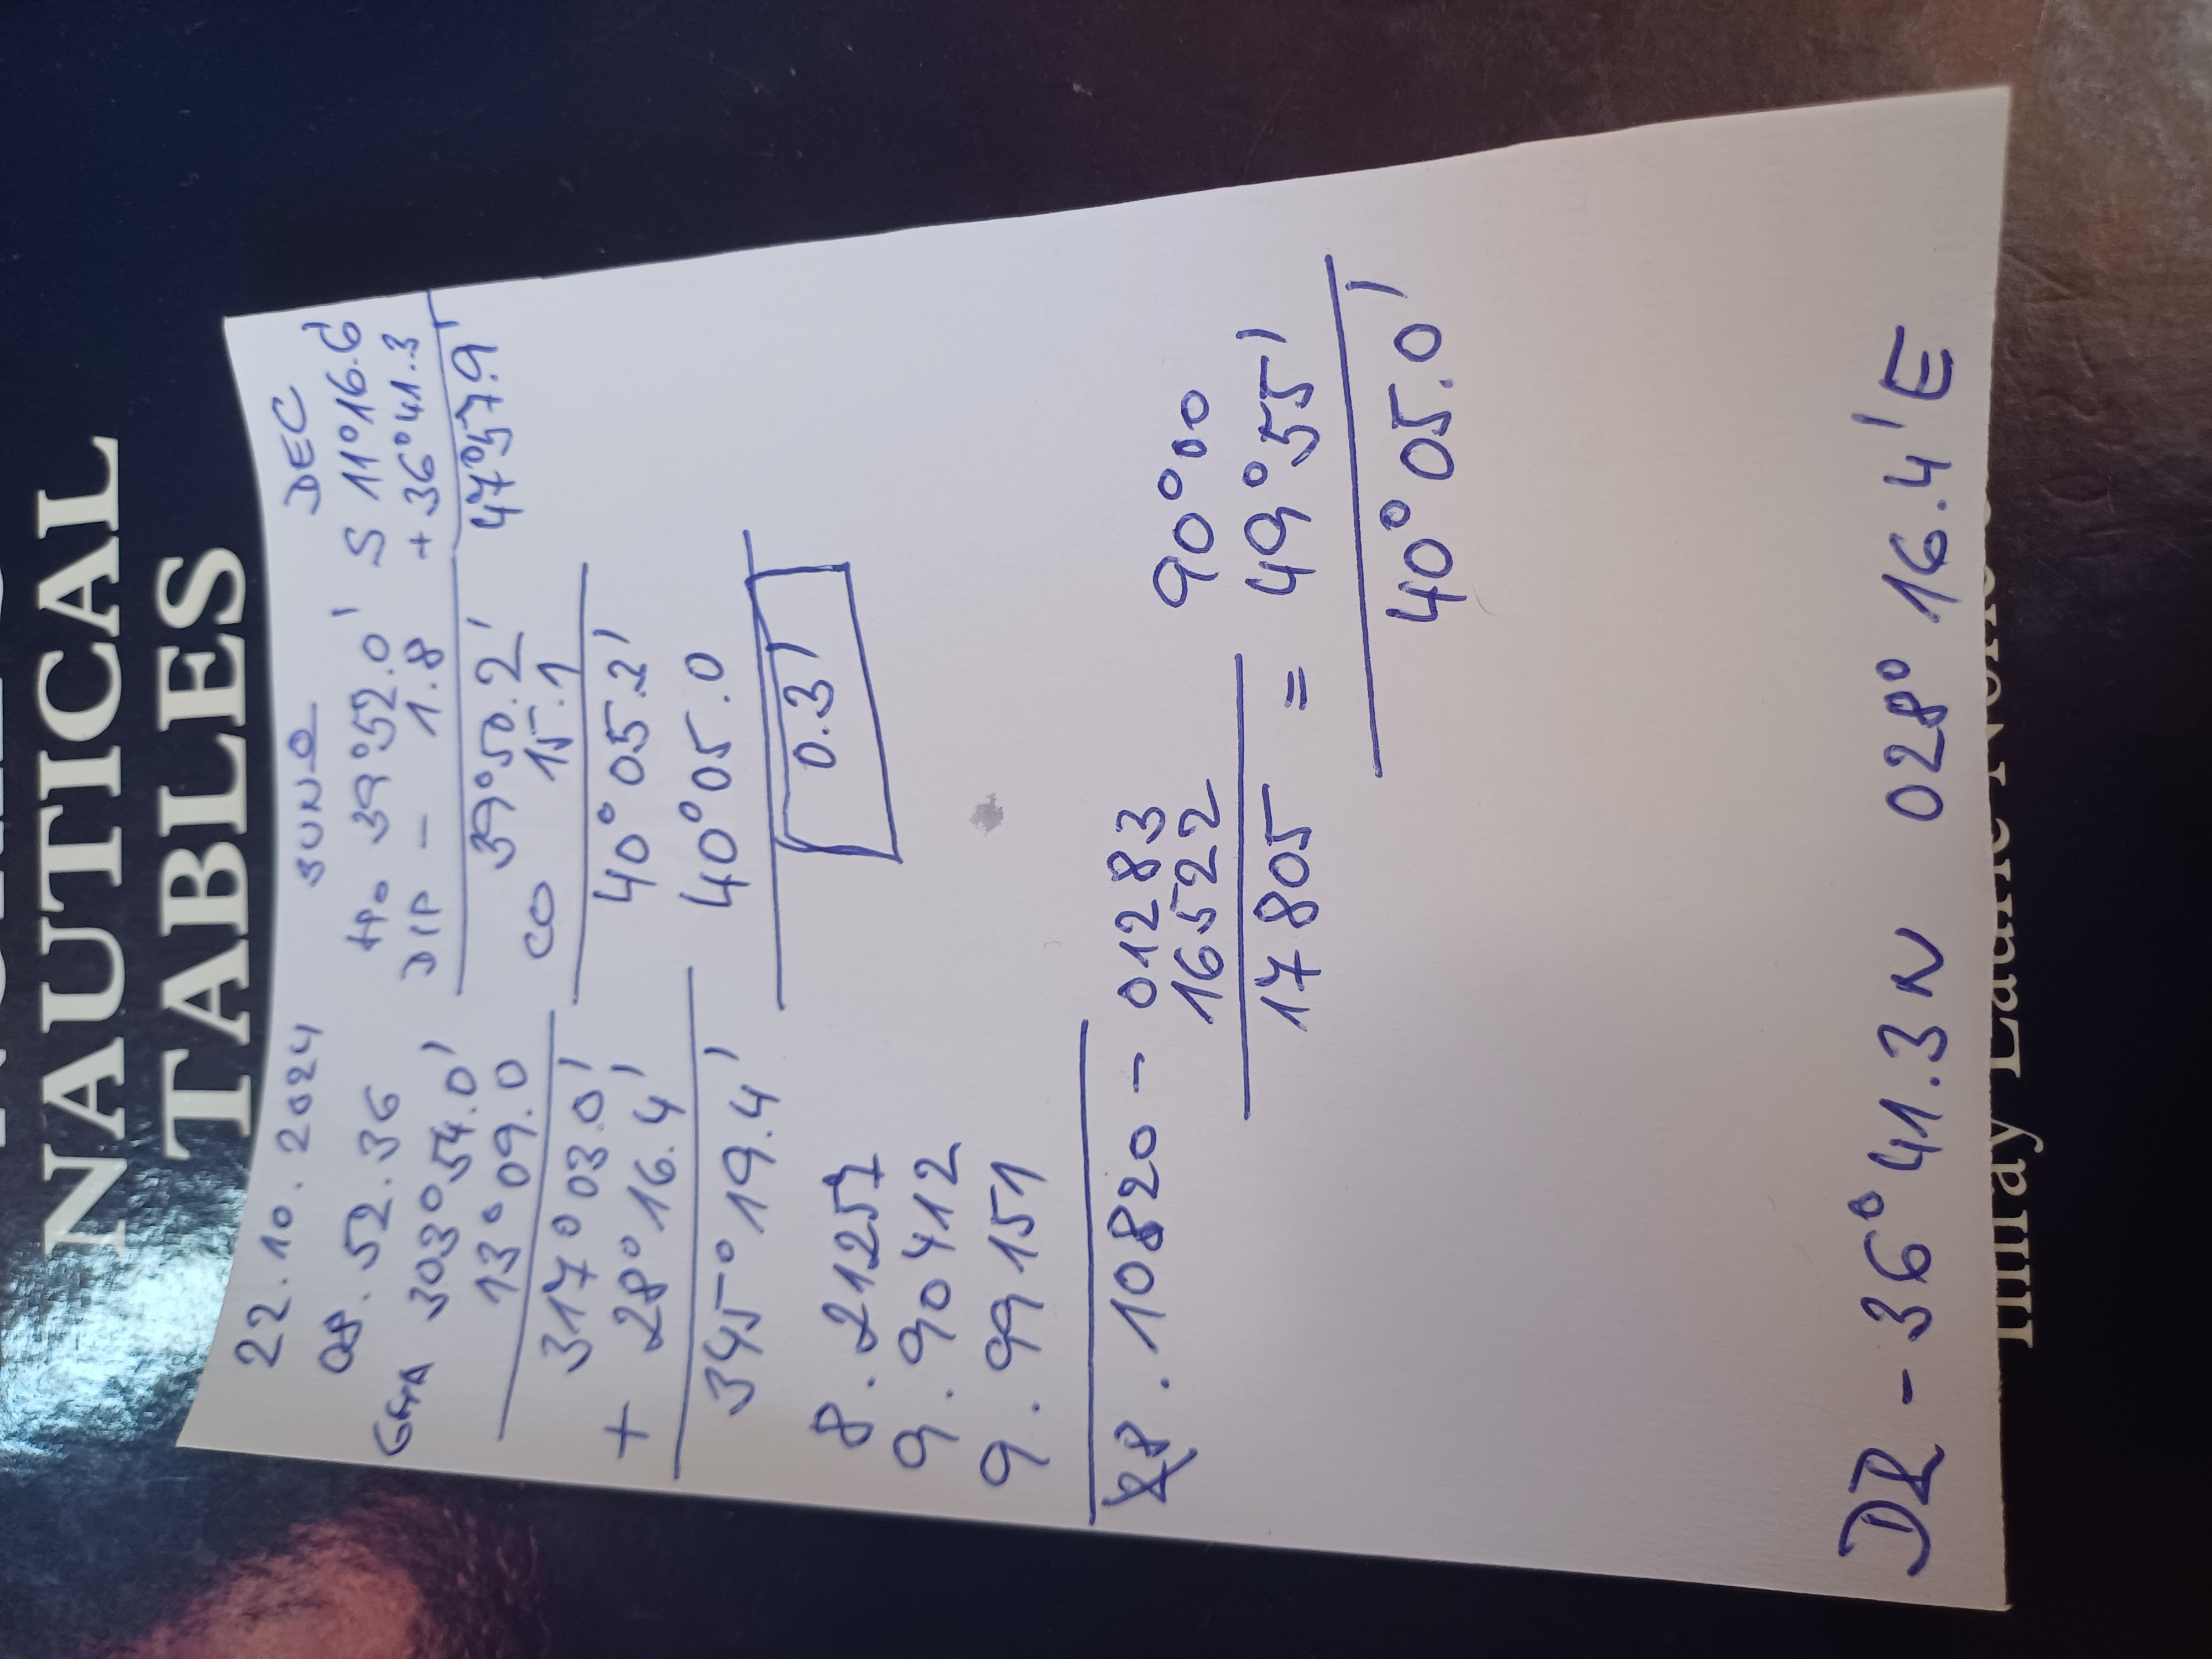 NAUTICAL
TABLES
22.10.2024 SUN DEC
08.52.36 Ho 39°52.0' S 11°16.6'
GHA 303°54.0' DIP - 1.8 + 36°41.3
13°09.0 39°50.2' 47°57.9'
317°03.0' CO 15.1
+ 28°16.4' 40°05.2'
345°19.4' 40°05.0
0.3'
8.21257
9.90412
9.99151
8.10820 - 01283
16522 90°00
17805 = 49°55'
40°05.0'
DR - 36°41.3 N 028°16.4'E
Imray Laurie Norie